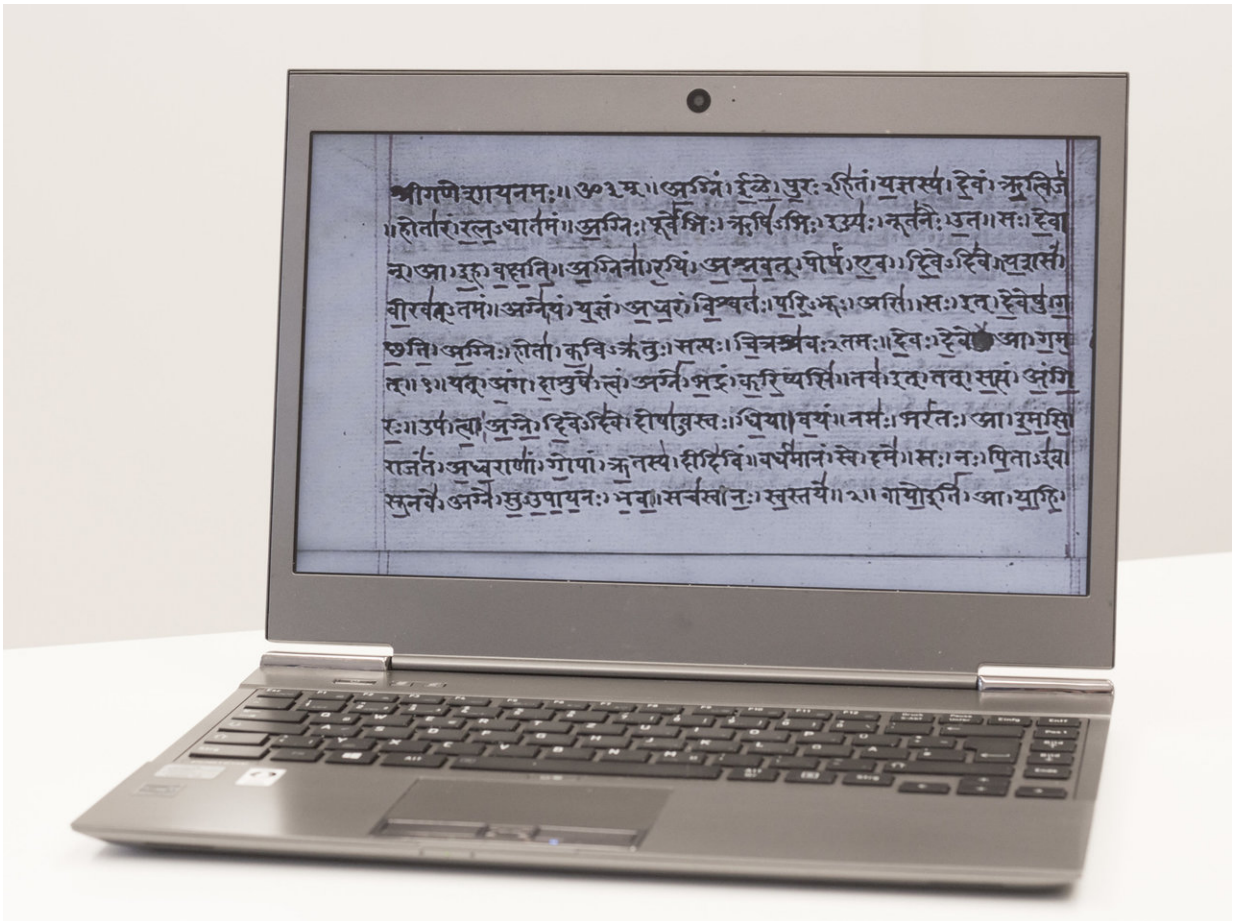 श्रीगणेशायनमः॥ ॐ३म्॥ अ॒ग्निं। ई॒ळे॒। पु॒रःऽहि॑तं। य॒ज्ञस्य॑। दे॒वं। ऋ॒त्विजं॑
॥होता॑रं। र॒त्न॒ऽधात॑मं॥ अ॒ग्निः। पूर्वे॑भिः। ऋषि॑ऽभिः। ईड्यः॑। नूत॑नैः। उ॒त॥ सः। दे॒वा
न्। आ। इ॒ह। व॒क्ष॒ति॒॥ अ॒ग्निना॑। र॒यिं। अ॒श्न॒व॒त्। पोषं॑। ए॒व। दि॒वेऽदि॑वे। य॒शसं॑
वी॒रव॑त्ऽतमं॥ अग्ने॑। यं। य॒ज्ञं। अ॒ध्व॒रं। वि॒श्वतः॑। प॒रि॒ऽभूः। असि॑॥ सः। इत्। दे॒वेषु॑। ग॒
च्छ॒ति॒। अ॒ग्निः। होता॑। क॒विऽक्र॑तुः। स॒त्यः। चि॒त्रश्र॑वःऽतमः॥ दे॒वः। आ। ग॒म॒
त्॥१॥ यत्। अं॒ग। दा॒शुषे॑। त्वं। अग्ने॑। भ॒द्रं। क॒रि॒ष्यसि॑॥ तव॑। इत्। तत्। स॒त्यं। अं॒गि॒
रः॒॥ उप॑। त्वा॒। अ॒ग्ने॒। दि॒वेऽदि॑वे। दोषा॑ऽवस्तः। धि॒या। व॒यं॥ नमः॑। भरं॑तः। आ। इ॒म॒सि॒
राजं॑तं। अ॒ध्व॒राणां॑। गो॒पां। ऋ॒तस्य॑। दीदि॑विं॥ वर्ध॑मानं। स्वे। दमे॑॥ सः। नः॒। पि॒ताऽइ॑व।
सू॒नवे॑। अग्ने॑। सु॒ऽउ॒पा॒य॒नः। भ॒व॒॥ सच॑स्व। नः॒। स्व॒स्तये॑॥२॥ वायो॒इति॑। आ। या॒हि॒।